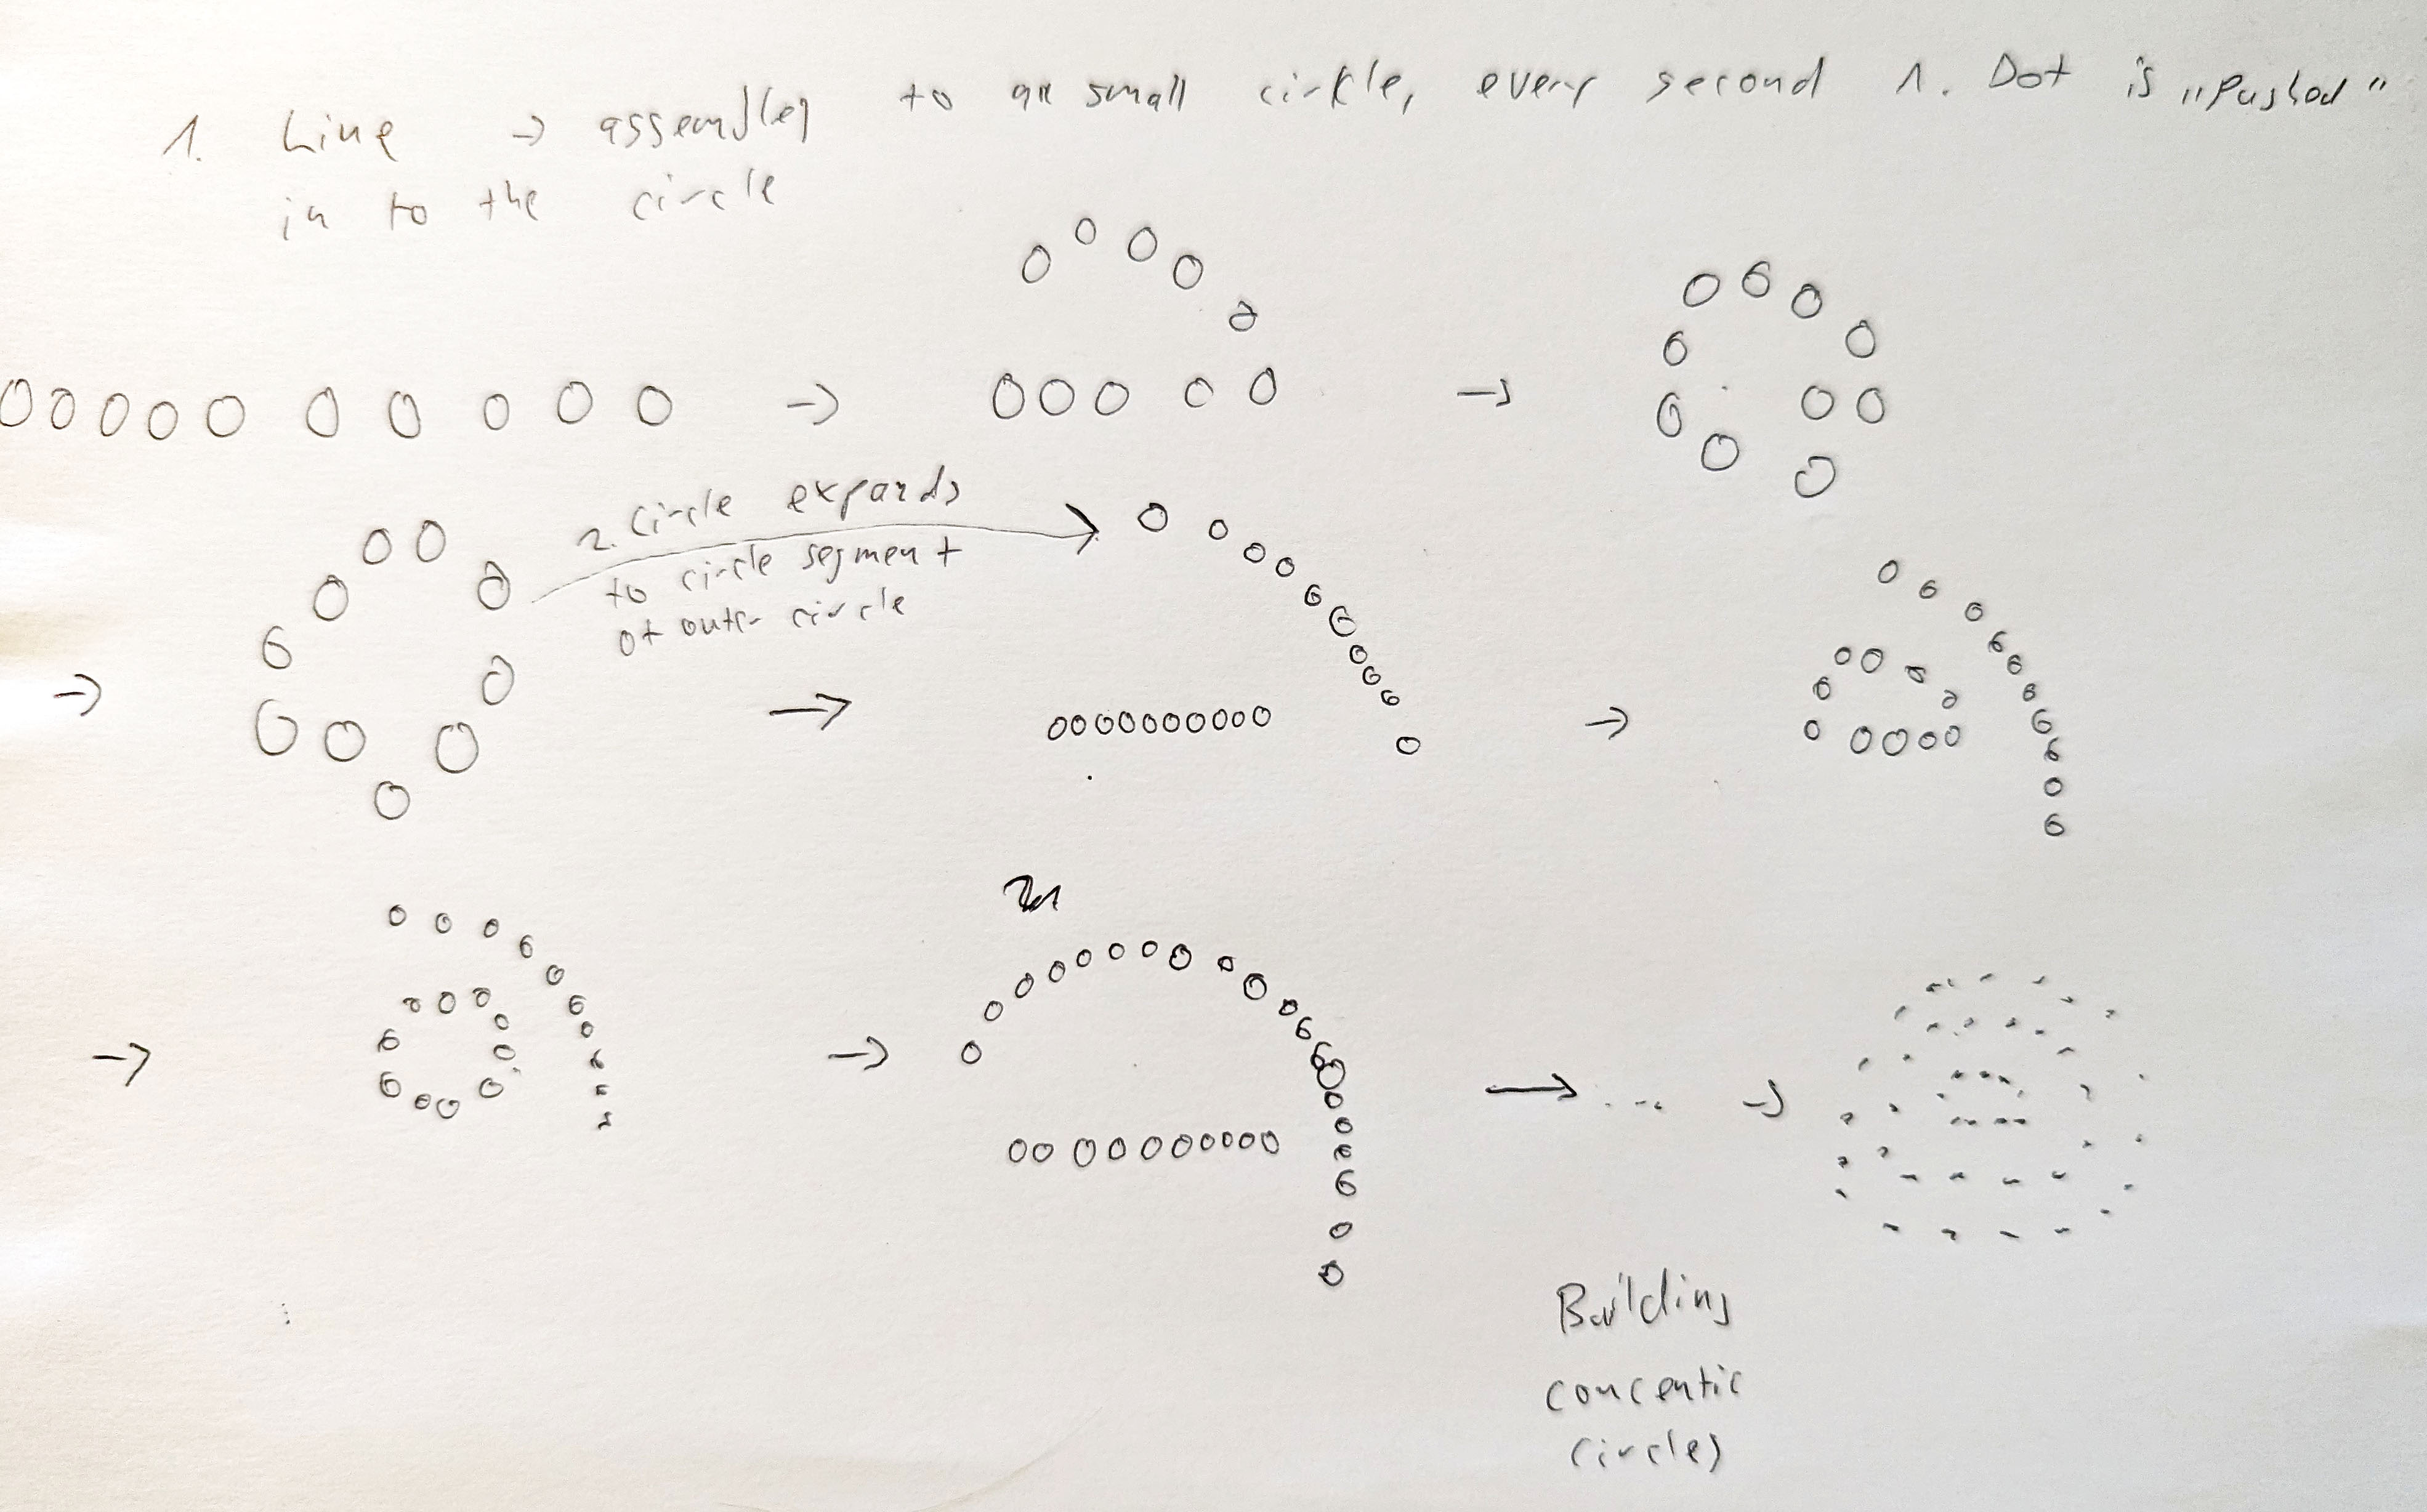 1. Line → assembles to an small cirkle, every second 1. Dot is „Pushed"
in to the circle
2. Circle expands
to circle segment
of outer circle
Building
concentic
circles